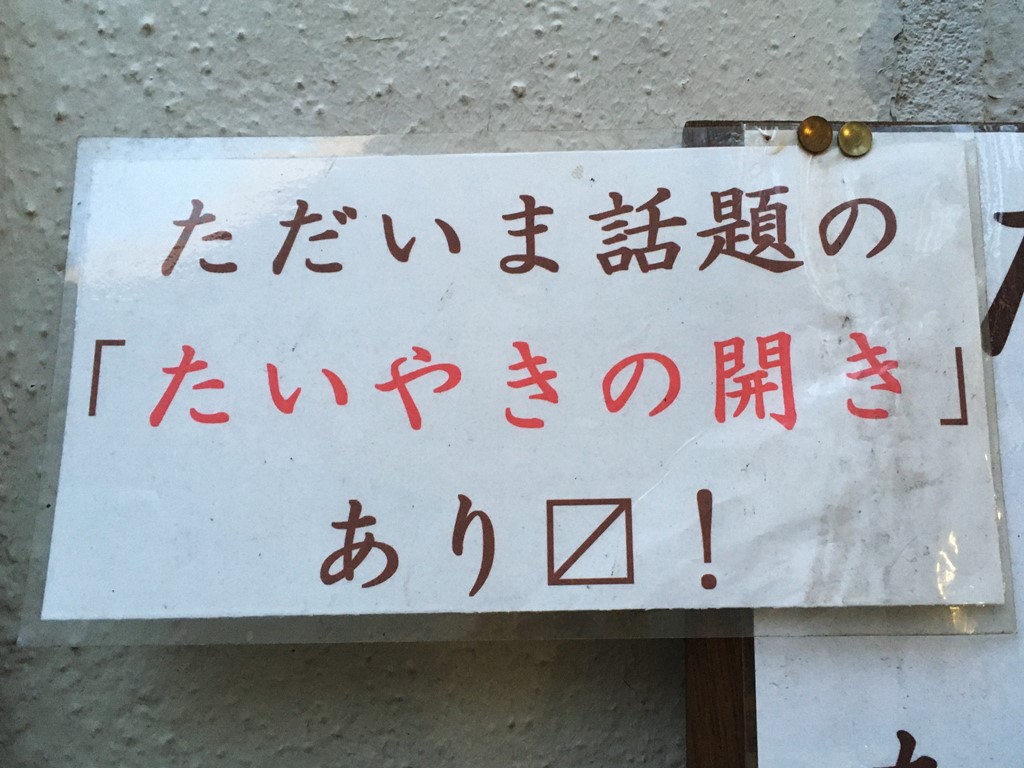 ただいま話題の
「たいやきの開き」
あり〼!